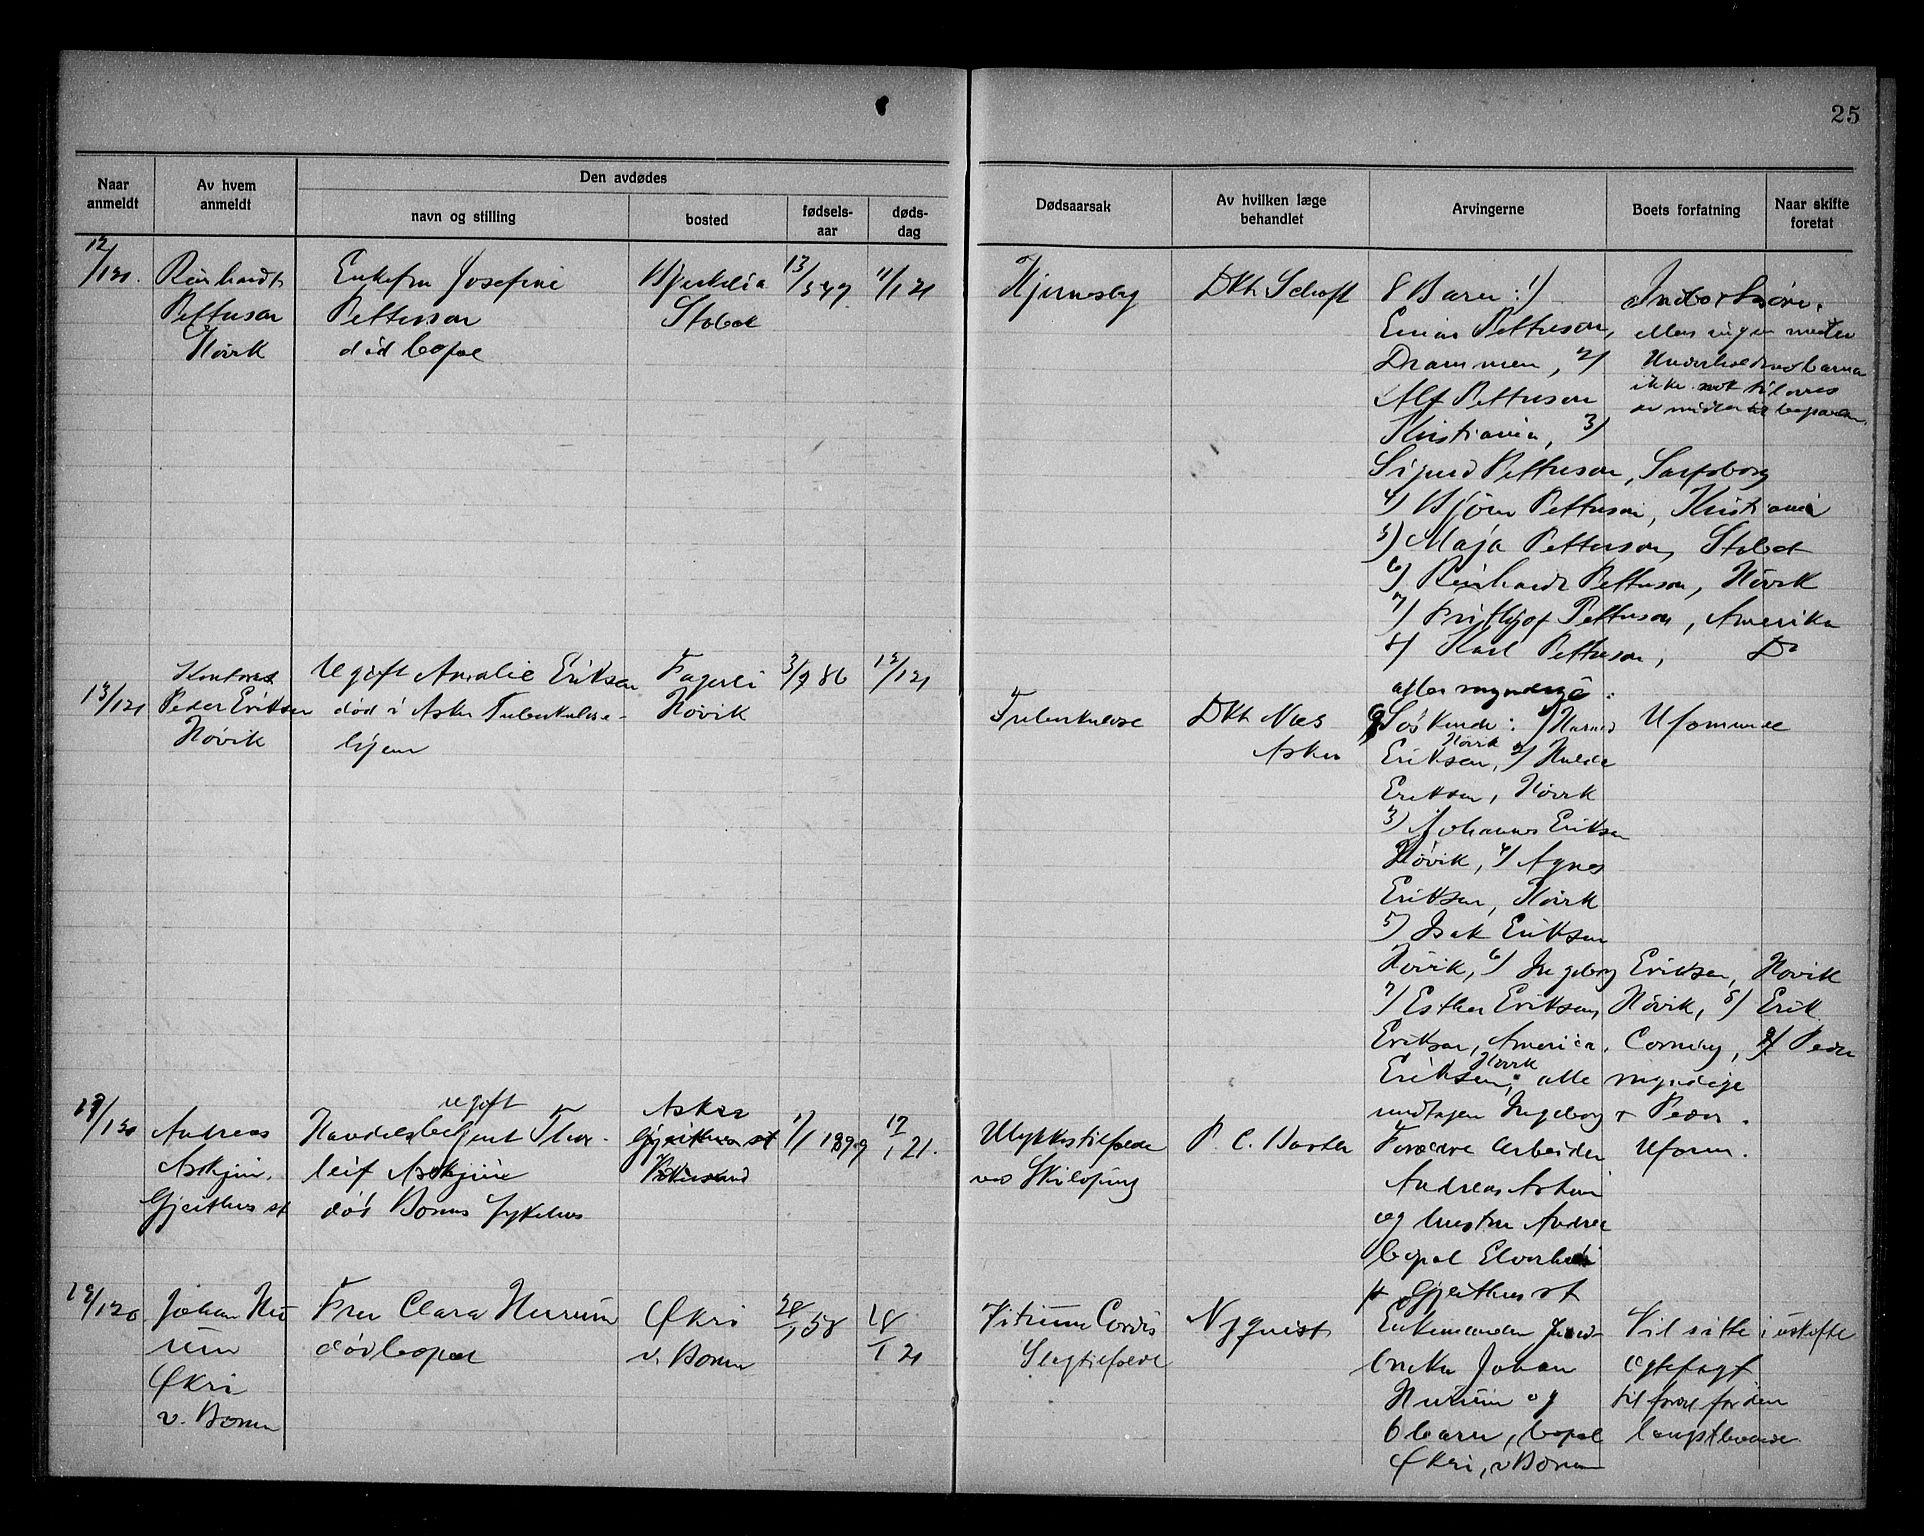 25
Naar anmeldt
Av hvem anmeldt
Den avdødes
navn og stilling
bosted
fødsels-aar
døds-dag
Dødsaarsak
Av hvilken læge behandlet
Arvingerne
Boets forfatning
Naar skifte foretat
12/121.
Reinhardt
Petterson
Høvik
Enkefru Josefine
Petterson
død bopæl
Bjerkelia
Stabæk
13/3 49
11/1 21
Hjerneslag
Dkt. Scheft
8 Barn: 1)
Einar Petterson,
Drammen, 2)
Alf Petterson
Kristiania, 3)
Sigurd Petterson, Sarpsborg
4) Bjørn Petterson, Kristiania
5) Maja Petterson, Stabek
6) Reinhardt Petterson, Høvik
7) Frithjof Petterson, Amerika
8) Karl Petterson, Do
alle myndige.
Indbo
ellers ingen midler
13/121
Peder Eriksen
Høvik
Ugift Amalie Eriksen
død i Asker Tuberkulose-
hjem
Fagerli
Høvik
3/9 86
12/121
Tuberkulose
Dkt. Næs
Asker
9 Søskende: 1) Harald
Eriksen, Høvik 2) Hulda
Eriksen, Høvik
3) Johannes Eriksen
Høvik, 4) Agnes
Eriksen, Høvik
5) Isak Eriksen
Høvik, 6) Ingeborg Eriksen, Høvik
7) Esther Eriksen, Høvik, 8) Erik
Eriksen, America, Corning, 9) Peder
Eriksen, Høvik; alle myndige
undtagen Ingeborg & Peder.
Uformuende
19/120
Andreas
Askjem.
Gjeithus st
ugift
Handelsbetjent Thor-
leif Askjem
død Bærums Sykehus
Asker
Gjeithus st
1/1 1899
17/1 21.
Ulykkestilfælde
ved Skiløping
P. C. Barth
Forældre Arbeider
Andreas Askjem
og hustru Andrea
bopæl
p. Gjeithus st
Uform.
19/120.
Johan Hu
rum
Økri
v. Bærum
Fru Clara Hurum
død bopæl
Økri
v. Bærum
58
18/1 21
Vitium Cordis
Slagtilfælde
Nyquist
Enkemanden
Johan
Hurum og
6 barn, bopæl
Økri, v. Bærum
Vil sitte i uskifte
til
længstlevende